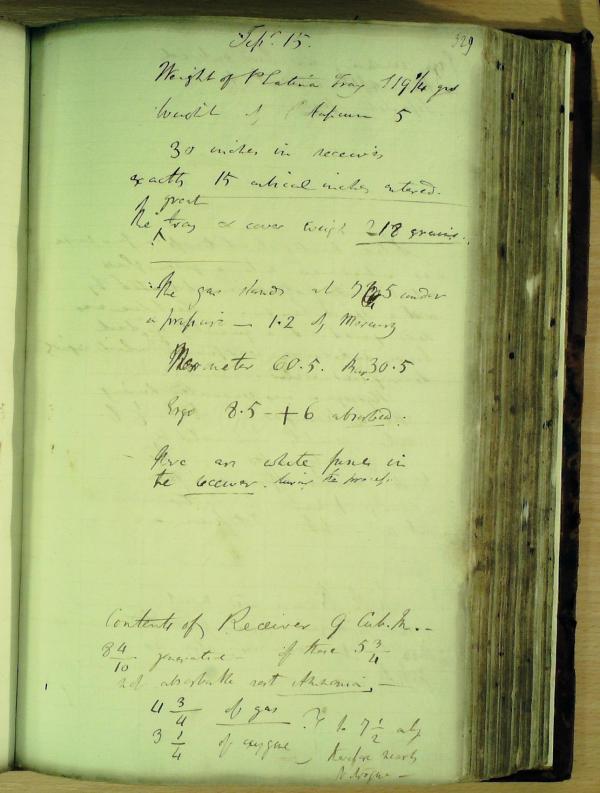 329
Septr. 15.
Weight of Platina tray 119 1/4 grs
Weight of Potassium 5
30 inches in receiver
exactly 15 cubical inches entered.
of great
the tray & cover weigh 218 grains.
The gas stands at 7 5 under
a pressure — 1.2 of Mercury
Thermometer 60.5. Bar 30.5
Ergo 8.5 - + 6 absorbed:
There are white fumes in
the receiver. during the process.
Contents of Receiver 9 Cub. In. -
8 4/10 generative - of these 5 3/4
not absorbable rest Ammonia, -
4 3/4 of gas to 7 1/2 only
3 1/4 of oxygene therefore nearly
Nitrogene -